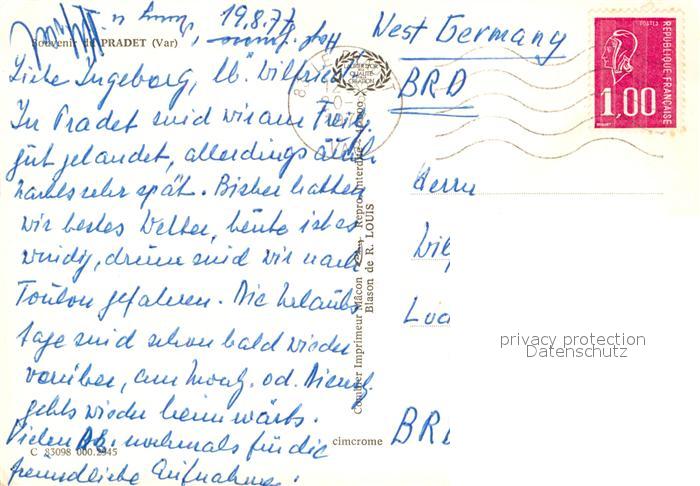 19.8.77
Souvenir du PRADET (Var)
Liebe Ingeborg, lb. Wilfried
In Pradet sind wir am Freit.
gut gelandet, allerdings
nachts sehr spät. Bisher hatten
wir bestes Wetter, heute ist es
windig, drum sind wir nach
Toulon gefahren. Die Urlaubs
tage sind schon bald wieder
vorüber, am Mont. od. Dienst.
gehts wieder heimwärts.
Vielen nochmals für die
freundliche Aufnahme!
C 83098 000.2945
cimcrome
Combier Imprimeur Mâcon
Repros interdites
Blason de R. LOUIS
West Germany
BRD
Herrn
Wil
BRD
POSTES
REPUBLIQUE FRANÇAISE
1,00
privacy protection
Datenschutz